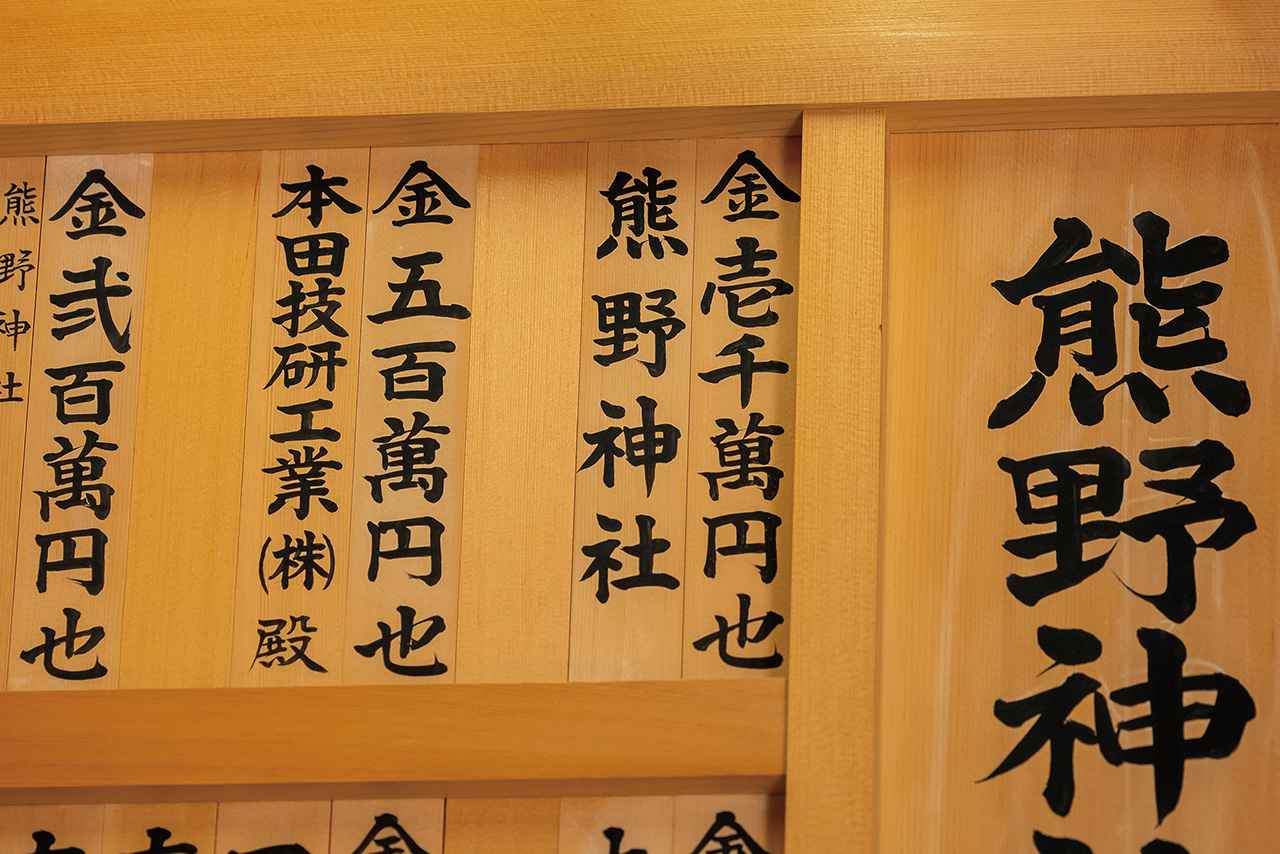 熊野神
金壱千萬円也
熊野神社
金五百萬円也
本田技研工業(株)殿
金弐百萬円也
熊野神社
金
金